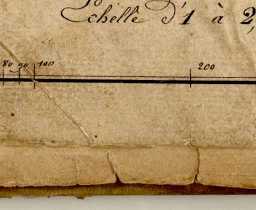 Echelle d'1 à 2,
80 90 100 200